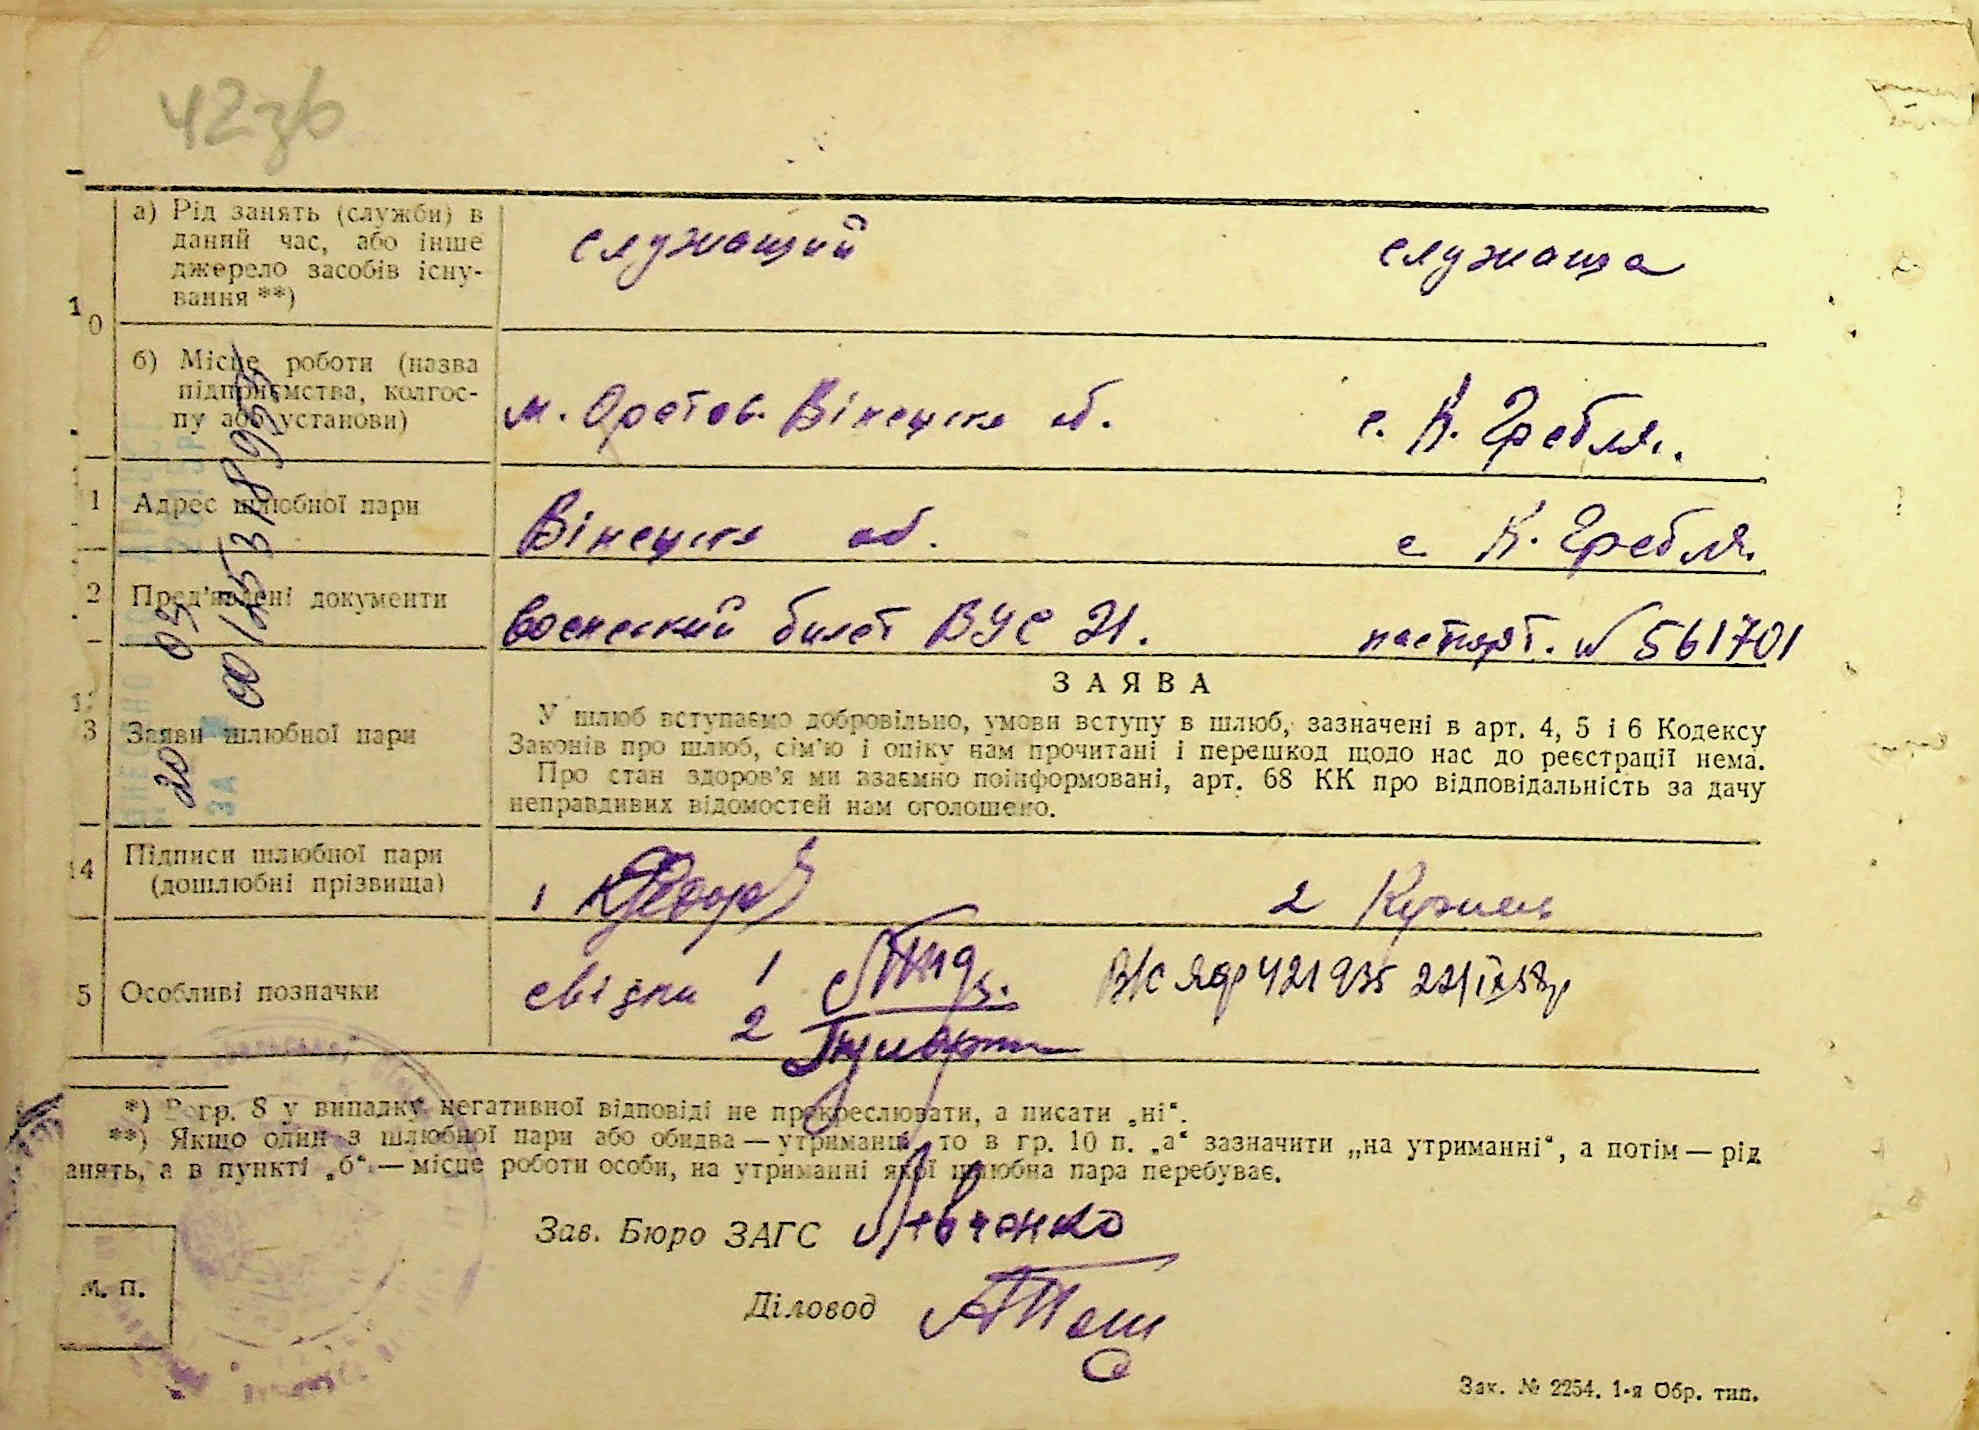 42зв
а) Рід занять (служби) в
даний час, або інше
джерело засобів існу-
вання **)
служащий
служаща
10
б) Місце роботи (назва
підприємства, колгос-
пу або установи)
м. Оратов. Вінецька об.
с. К. Гребля.
1 Адрес шлюбної пари
Вінецька об.
с К. Гребля.
2 Пред'явлені документи
военский билет ВУС 21.
паспорт. № 561701
3 Заяви шлюбної пари
ЗАЯВА
У шлюб вступаємо добровільно, умови вступу в шлюб, зазначені в арт. 4, 5 і 6 Кодексу
Законів про шлюб, сім'ю і опіку нам прочитані і перешкод щодо нас до реєстрації нема.
Про стан здоров'я ми взаємно поінформовані, арт. 68 КК про відповідальність за дачу
неправдивих відомостей нам оголошено.
14 Підписи шлюбної пари
(дошлюбні прізвища)
1
2
5 Особливі позначки
свідки 1
2
ЯФ 421935
*) В гр. 8 у випадку негативної відповіді не прокреслювати, а писати „ні“.
**) Якщо один з шлюбної пари або обидва — утриманці, то в гр. 10 п. „а“ зазначити „на утриманні“, а потім — рід
анять, а в пункті „б“ — місце роботи особи, на утриманні якої шлюбна пара перебуває.
Зав. Бюро ЗАГС Левченко
Діловод
М. П.
Зак. № 2254. 1-я Обр. тип.